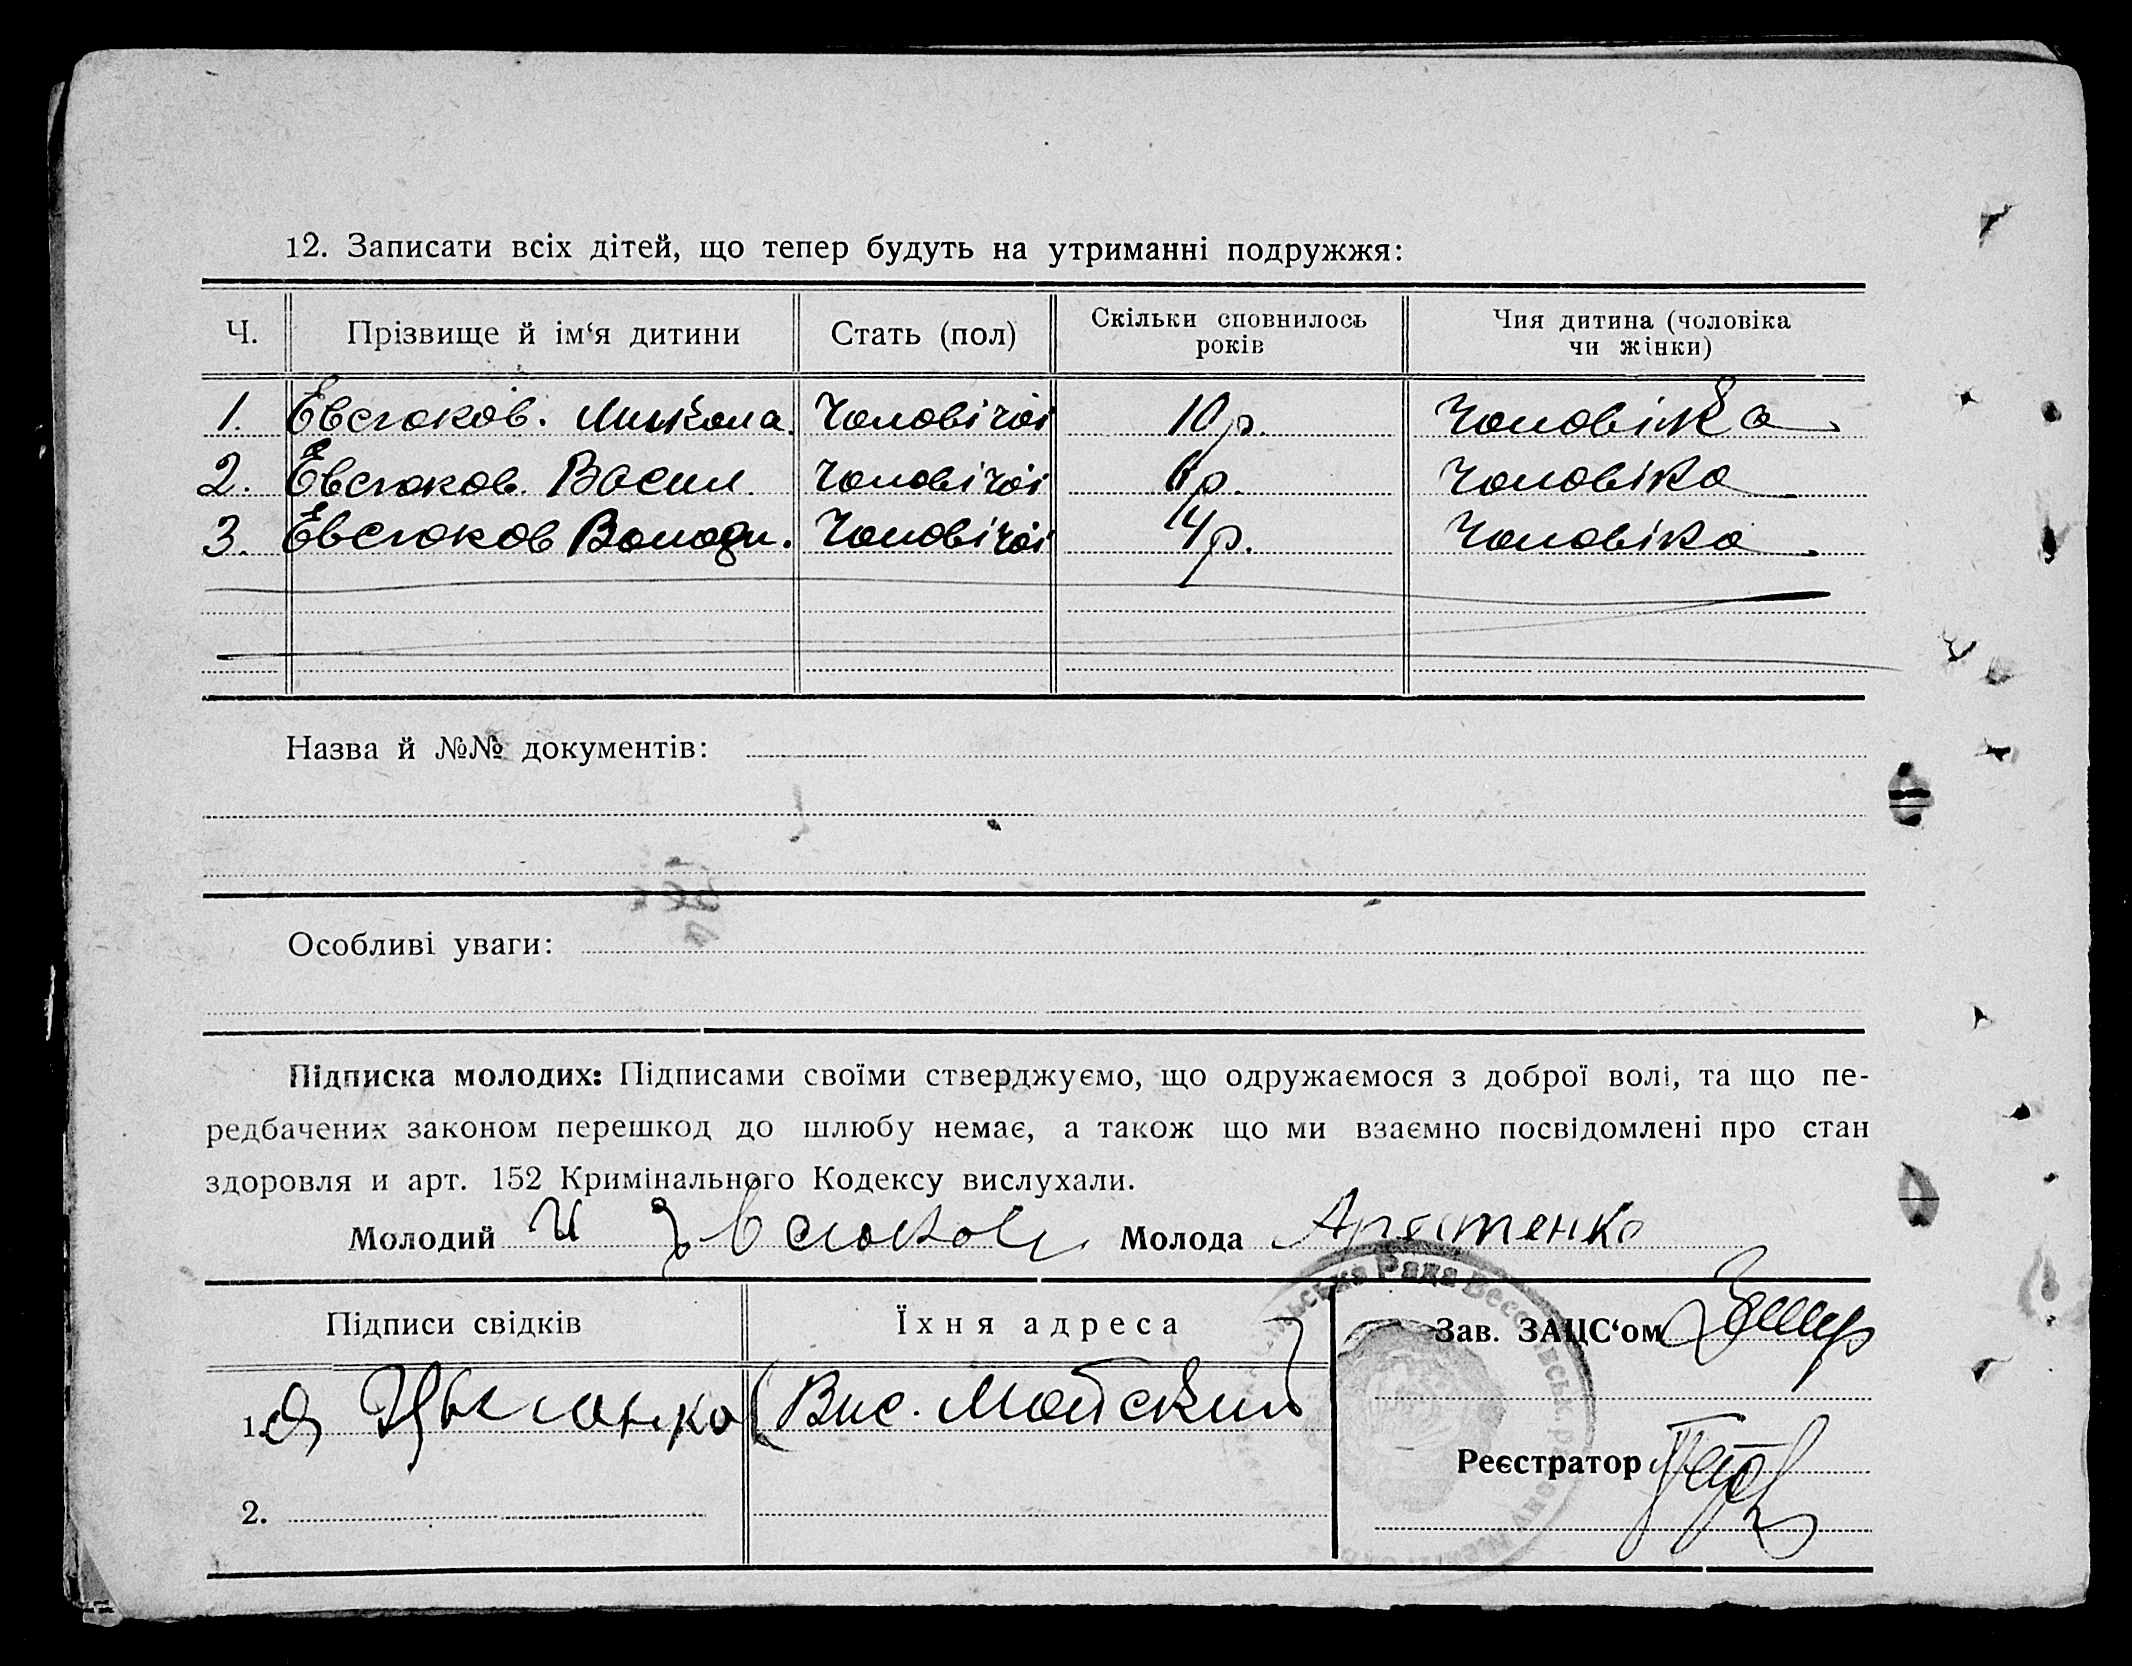 12. Записати всіх дітей, що тепер будуть на утриманні подружжя:
Ч. Прізвище й ім‘я дитини Стать (пол) Скільки сповнилось років Чия дитина (чоловіка чи жінки)
1. Евсюков. Микола. Чоловічої 10 р. Чоловіка
2. Евсюков. Васил Чоловічої р. Чоловіка
3. Евсюков Володи. Чоловічої р. Чоловіка
Назва й №№ документів:
Особливі уваги:
Підписка молодих: Підписами своїми стверджуємо, що одружаємося з доброї волі, та що пе-
редбачених законом перешкод до шлюбу немає, а також що ми взаємно посвідомлені про стан
здоровля и арт. 152 Кримінального Кодексу вислухали.
Молодий Молода
Підписи свідків Їхня адреса Зав. ЗАЦС‘ом
1. Вис. Майский
Реєстратор
2.
Рада